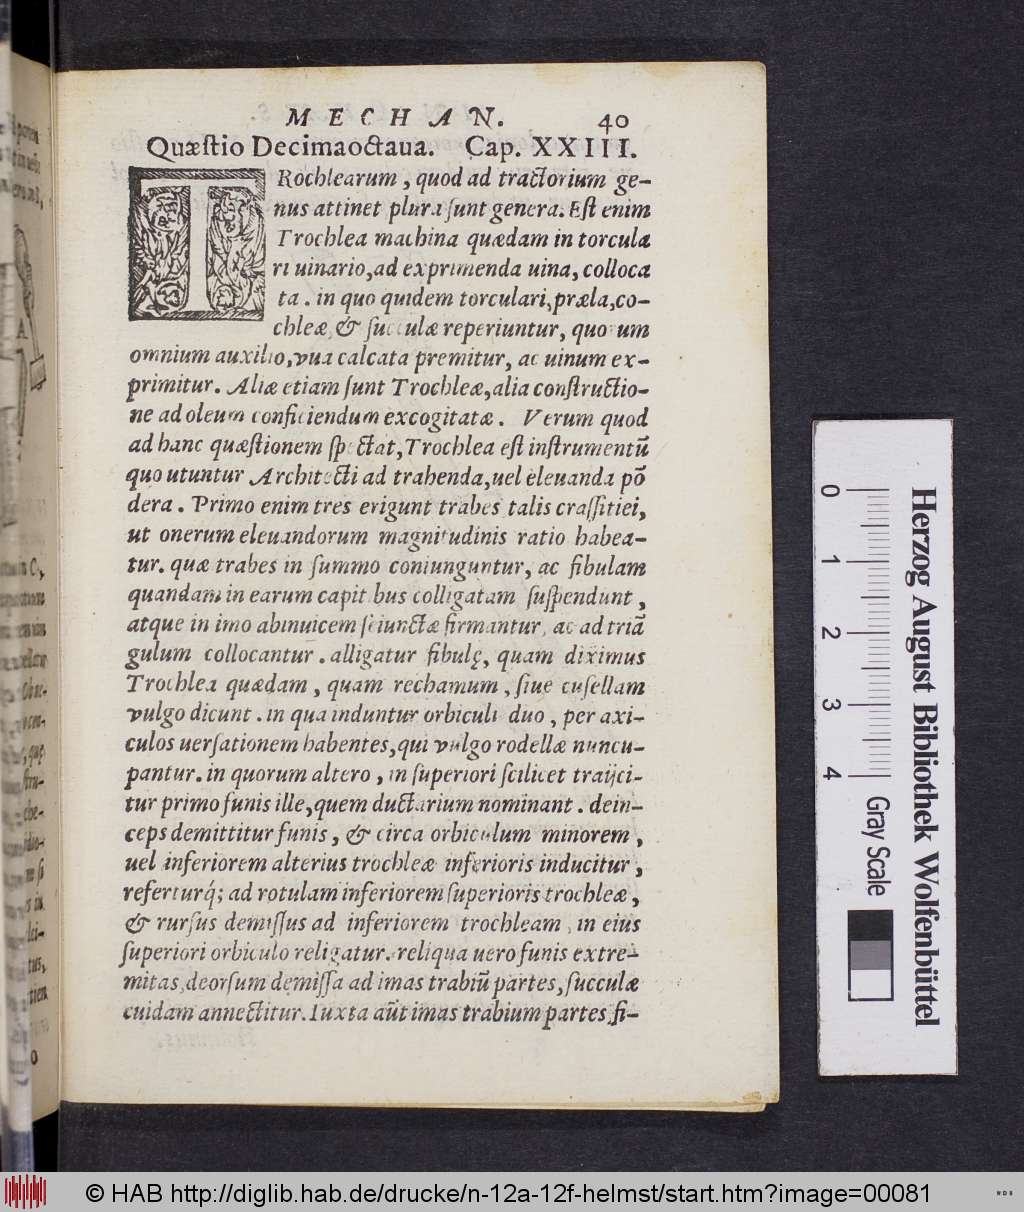 MECHAN. 40
Quæstio Decimaoctaua. Cap. XXIII.
TRochlearum, quod ad tractorium ge-
nus attinet plura sunt genera. Est enim
Trochlea machina quædam in torcula
ri uinario, ad exprimenda uina, colloca
ta. in quo quidem torculari, præla, co-
chleæ, & succulæ reperiuntur, quorum
omnium auxilio, vua calcata premitur, ac uinum ex-
primitur. Aliæ etiam sunt Trochleæ, alia constructio-
ne ad oleum conficiendum excogitatæ. Verum quod
ad hanc quæstionem spectat, Trochlea est instrumentū
quo utuntur Architecti ad trahenda, uel eleuanda pō
dera. Primo enim tres erigunt trabes talis crassitiei,
ut onerum eleuandorum magnitudinis ratio habea-
tur. quæ trabes in summo coniunguntur, ac fibulam
quandam in earum capitibus colligatam suspendunt,
atque in imo abinuicem seiunctæ firmantur, ac ad triā
gulum collocantur. alligatur fibulę, quam diximus
Trochlea quædam, quam rechamum, siue cusellam
vulgo dicunt. in qua induntur orbiculi duo, per axi-
culos uersationem habentes, qui vulgo rodellæ nuncu-
pantur. in quorum altero, in superiori scilicet traijci-
tur primo funis ille, quem ductarium nominant. dein-
ceps demittitur funis, & circa orbiculum minorem,
uel inferiorem alterius trochleæ inferioris inducitur,
referturq́; ad rotulam inferiorem superioris trochleæ,
& rursus demissus ad inferiorem trochleam, in eius
superiori orbiculo religatur. reliqua uero funis extre-
mitas, deorsum demissa ad imas trabiū partes, succulæ
cuidam annectitur. Iuxta aūt imas trabium partes, fi-
0 1 2 3 4 Gray Scale
Herzog August Bibliothek Wolfenbüttel
© HAB http://diglib.hab.de/drucke/n-12a-12f-helmst/start.htm?image=00081